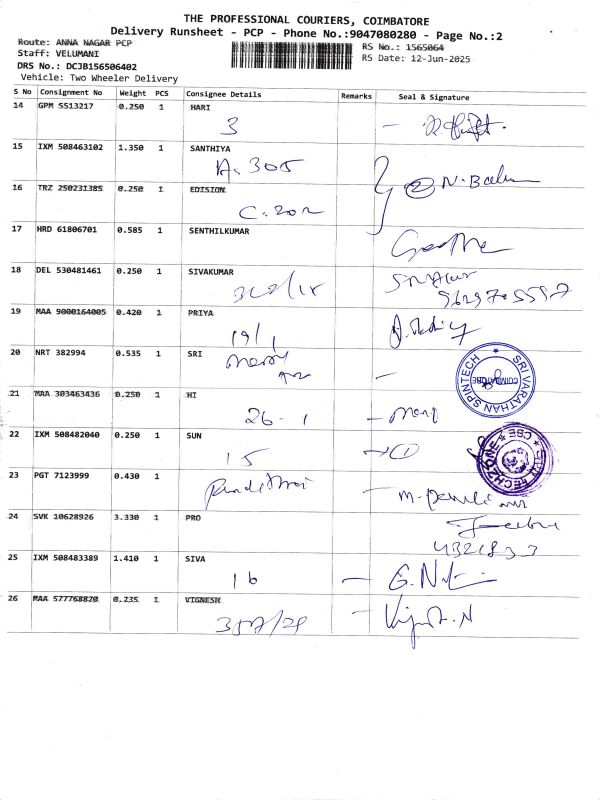 THE PROFESSIONAL COURIERS, COIMBATORE
Delivery Runsheet - PCP - Phone No.:9047080280 - Page No.:2
Route: ANNA NAGAR PCP
RS No.: 1565064
Staff: VELUMANI
RS Date: 12-Jun-2025
DRS No.: DCJB156506402
Vehicle: Two Wheeler Delivery
S No Consignment No Weight PCS Consignee Details Remarks Seal & Signature
14 GPM 5513217 0.250 1 HARI
3
15 IXM 508463102 1.350 1 SANTHIYA
A. 305
16 TRZ 250231385 0.250 1 EDISION
C. 202
17 HRD 61806701 0.585 1 SENTHILKUMAR
18 DEL 530481461 0.250 1 SIVAKUMAR
19 MAA 9000164005 0.420 1 PRIYA
19/1
20 NRT 382994 0.535 1 SRI
SRI VARATHAN SPINTECH
COIMBATORE
21 MAA 303463436 0.250 1 HI
26-1
22 IXM 508482040 0.250 1 SUN
15
23 PGT 7123999 0.430 1
24 SVK 10628926 3.330 1 PRO
25 IXM 508483389 1.410 1 SIVA
16
26 MAA 577768820 0.235 1 VIGNESH